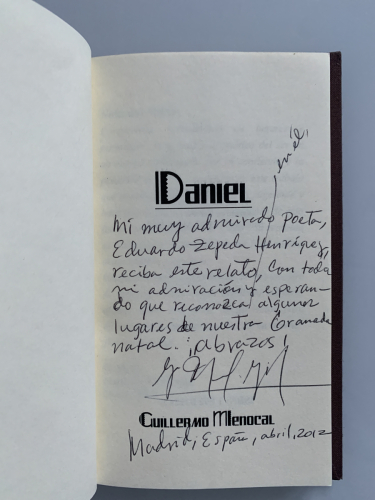 en él
Daniel
Mi muy admirado poeta,
Eduardo Zepeda Henríquez,
reciba este relato, con toda
mi admiración y esperan-
do que reconozca algunos
lugares de nuestra Granada
natal. ¡abrazos!
Guillermo Menocal
Madrid, España, abril, 2012